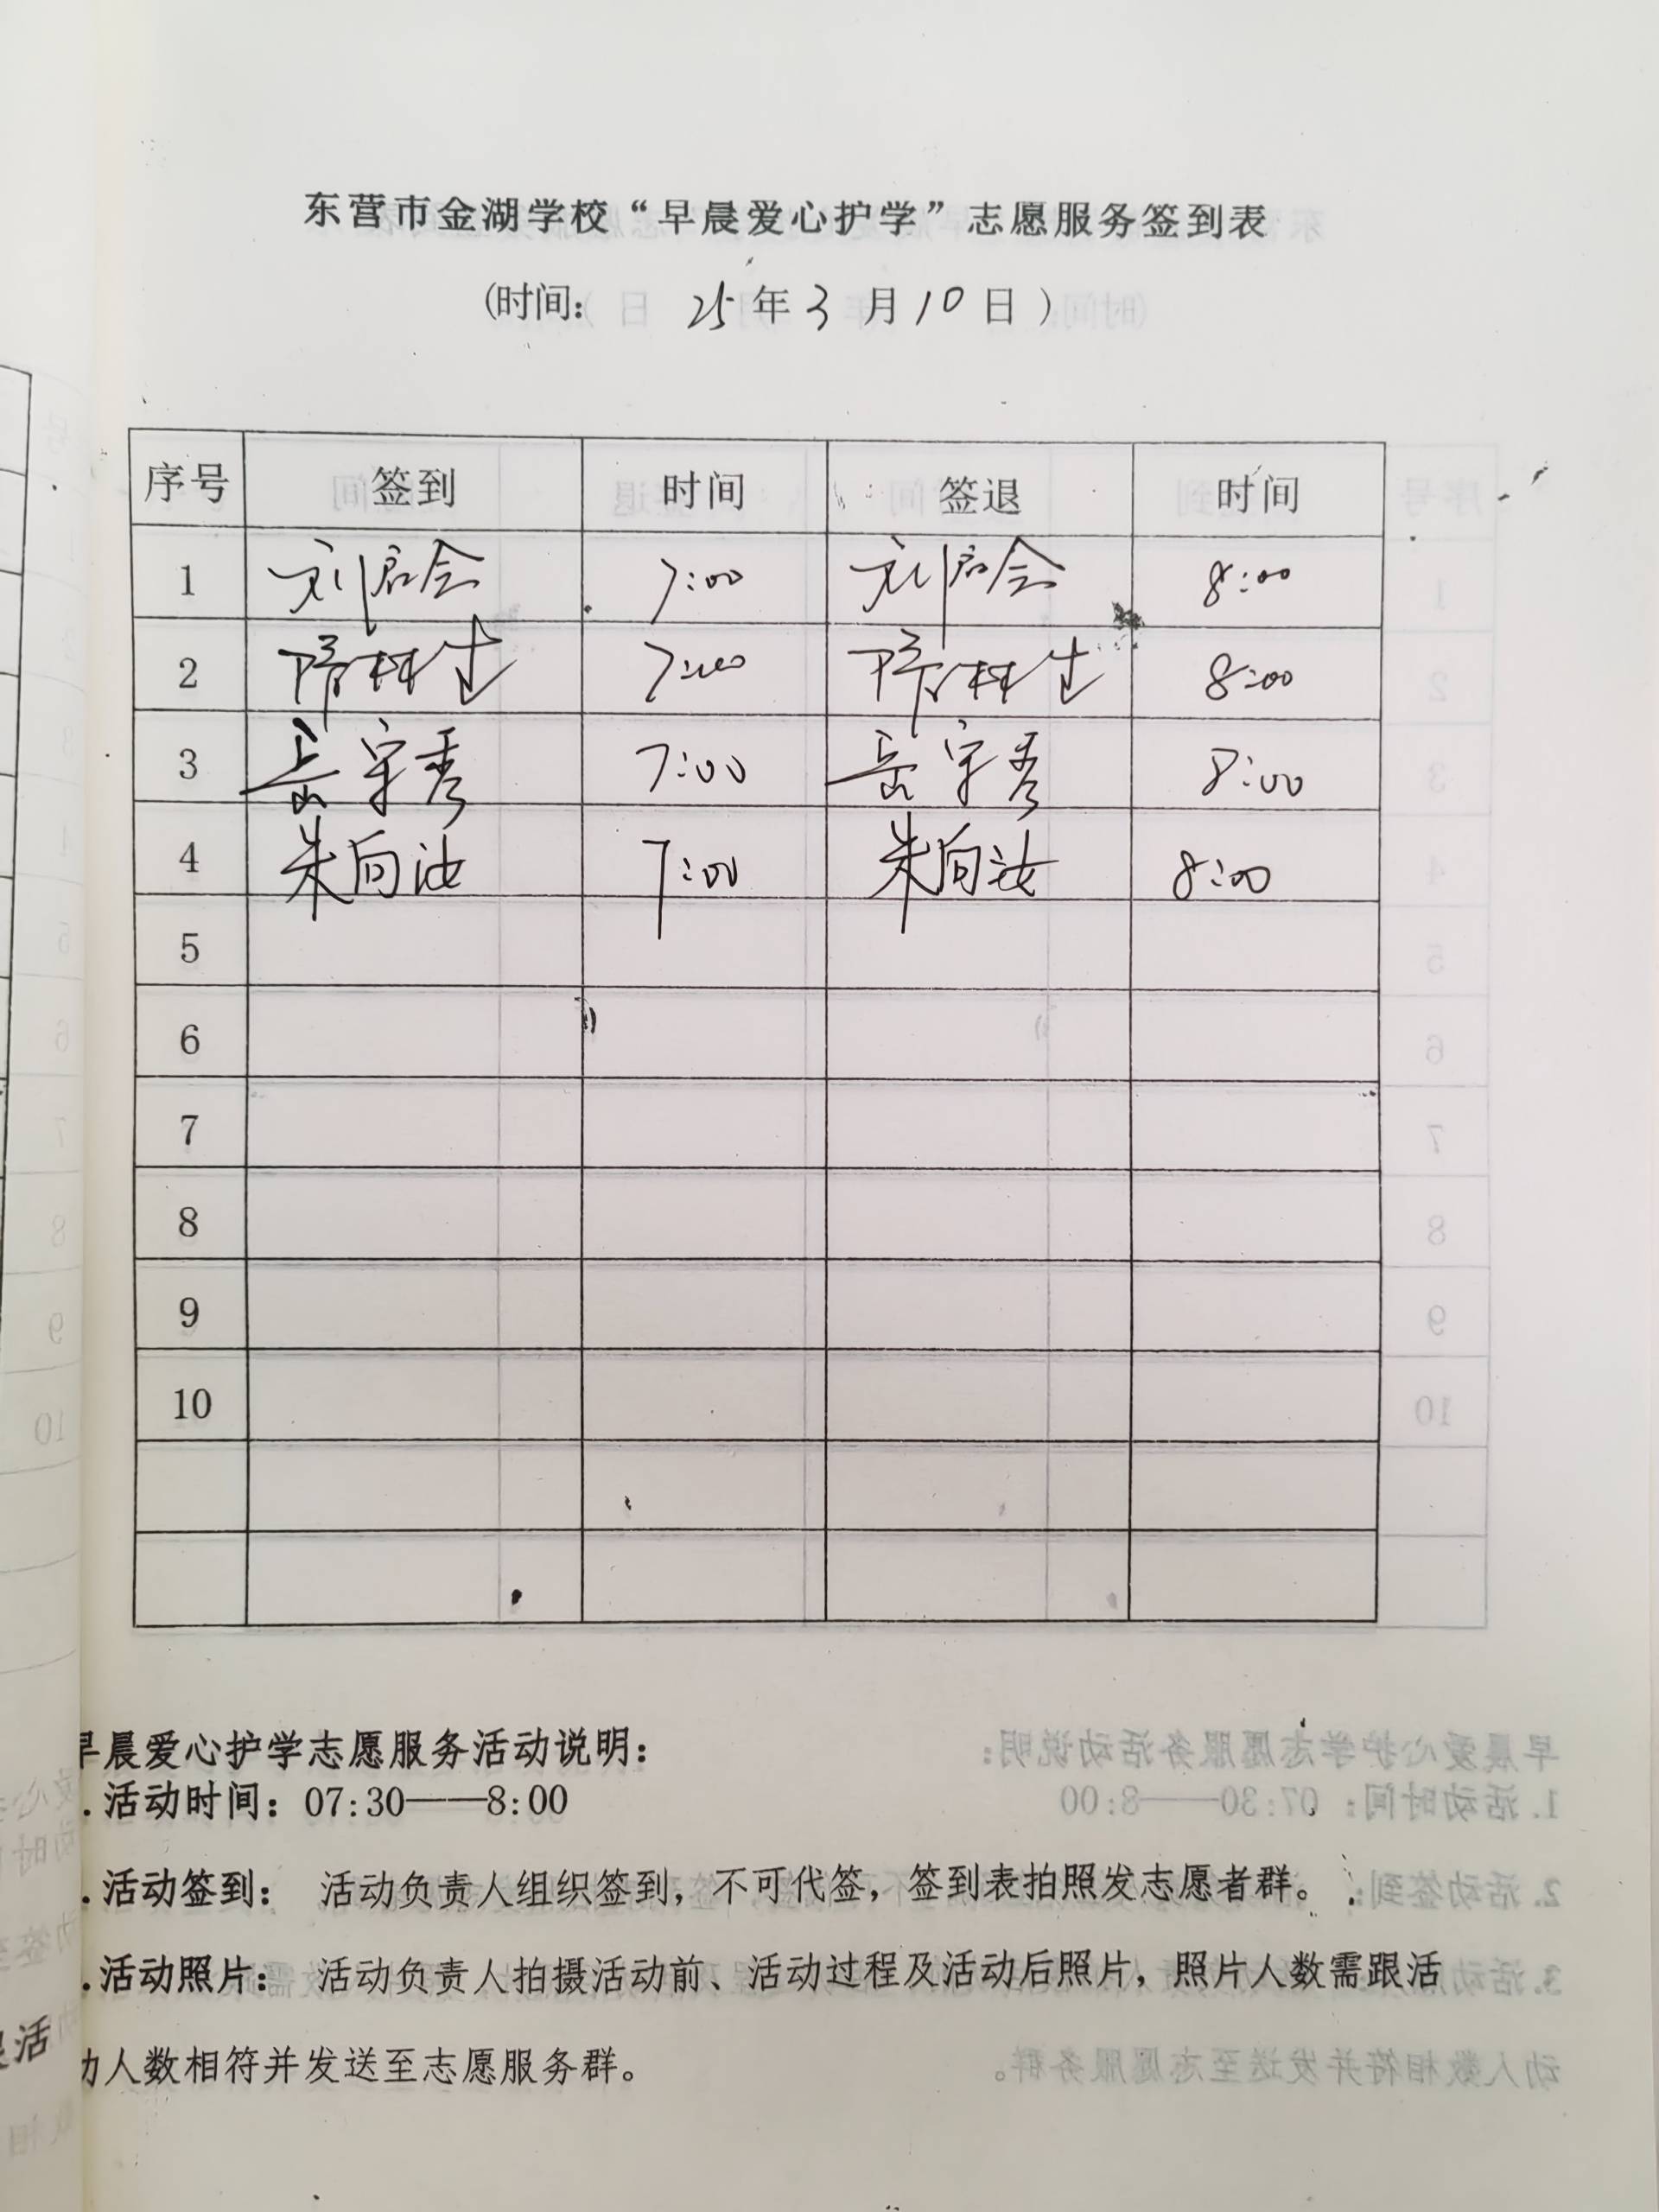 东营市金湖学校“早晨爱心护学”志愿服务签到表
(时间: 25年3月10日)
序号 签到 时间 签退 时间
1 刘启会 7:00 刘启会 8:00
2 7:00 8:00
3 岳守秀 7:00 岳守秀 8:00
4 朱向汝 7:00 朱向汝 8:00
5
6
7
8
9
10
早晨爱心护学志愿服务活动说明：
.活动时间：07:30——8:00
.活动签到： 活动负责人组织签到，不可代签，签到表拍照发志愿者群。
.活动照片： 活动负责人拍摄活动前、活动过程及活动后照片，照片人数需跟活
动人数相符并发送至志愿服务群。